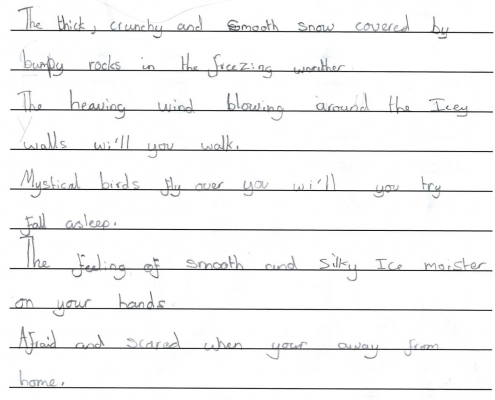 The thick, crunchy and smooth snow covered by
bumpy rocks in the freezing weither
The heaving wind blowing around the Icey
walls wi'll you walk.
Mystical birds fly over you wi'll you try
fall asleep.
The feeling of smooth and silky Ice moister
on your hands
Afraid and scared when your away from
home.